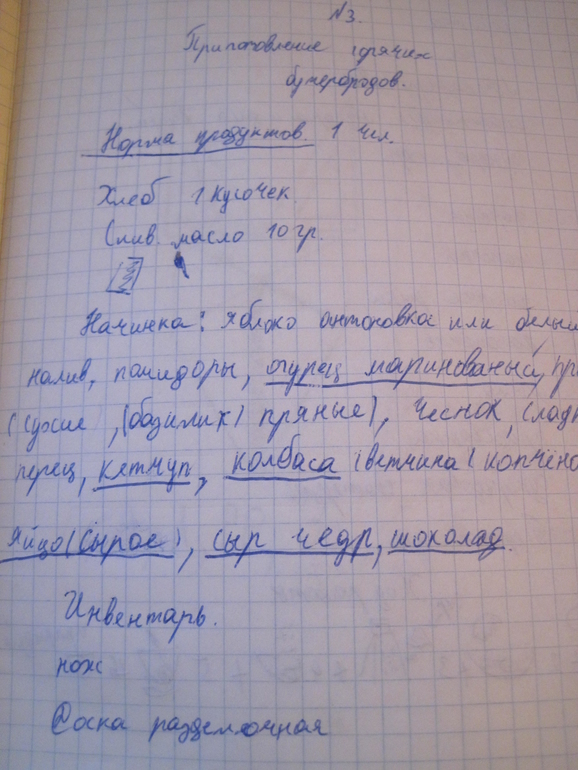 №3.
Приготовление горячих
бутербродов.
Норма продуктов. 1 чел.
Хлеб 1 кусочек
Слив. масло 10 гр.
Начинка: Яблоко антоновка или белый
налив, помидоры, огурец маринованый, пр
(сухие, (базилик) пряные), чеснок, слад
перец, кетчуп, колбаса (ветчина) копчено
яйцо (сырое), сыр чедр, шоколад.
Инвентарь.
нож
Доска разделочная